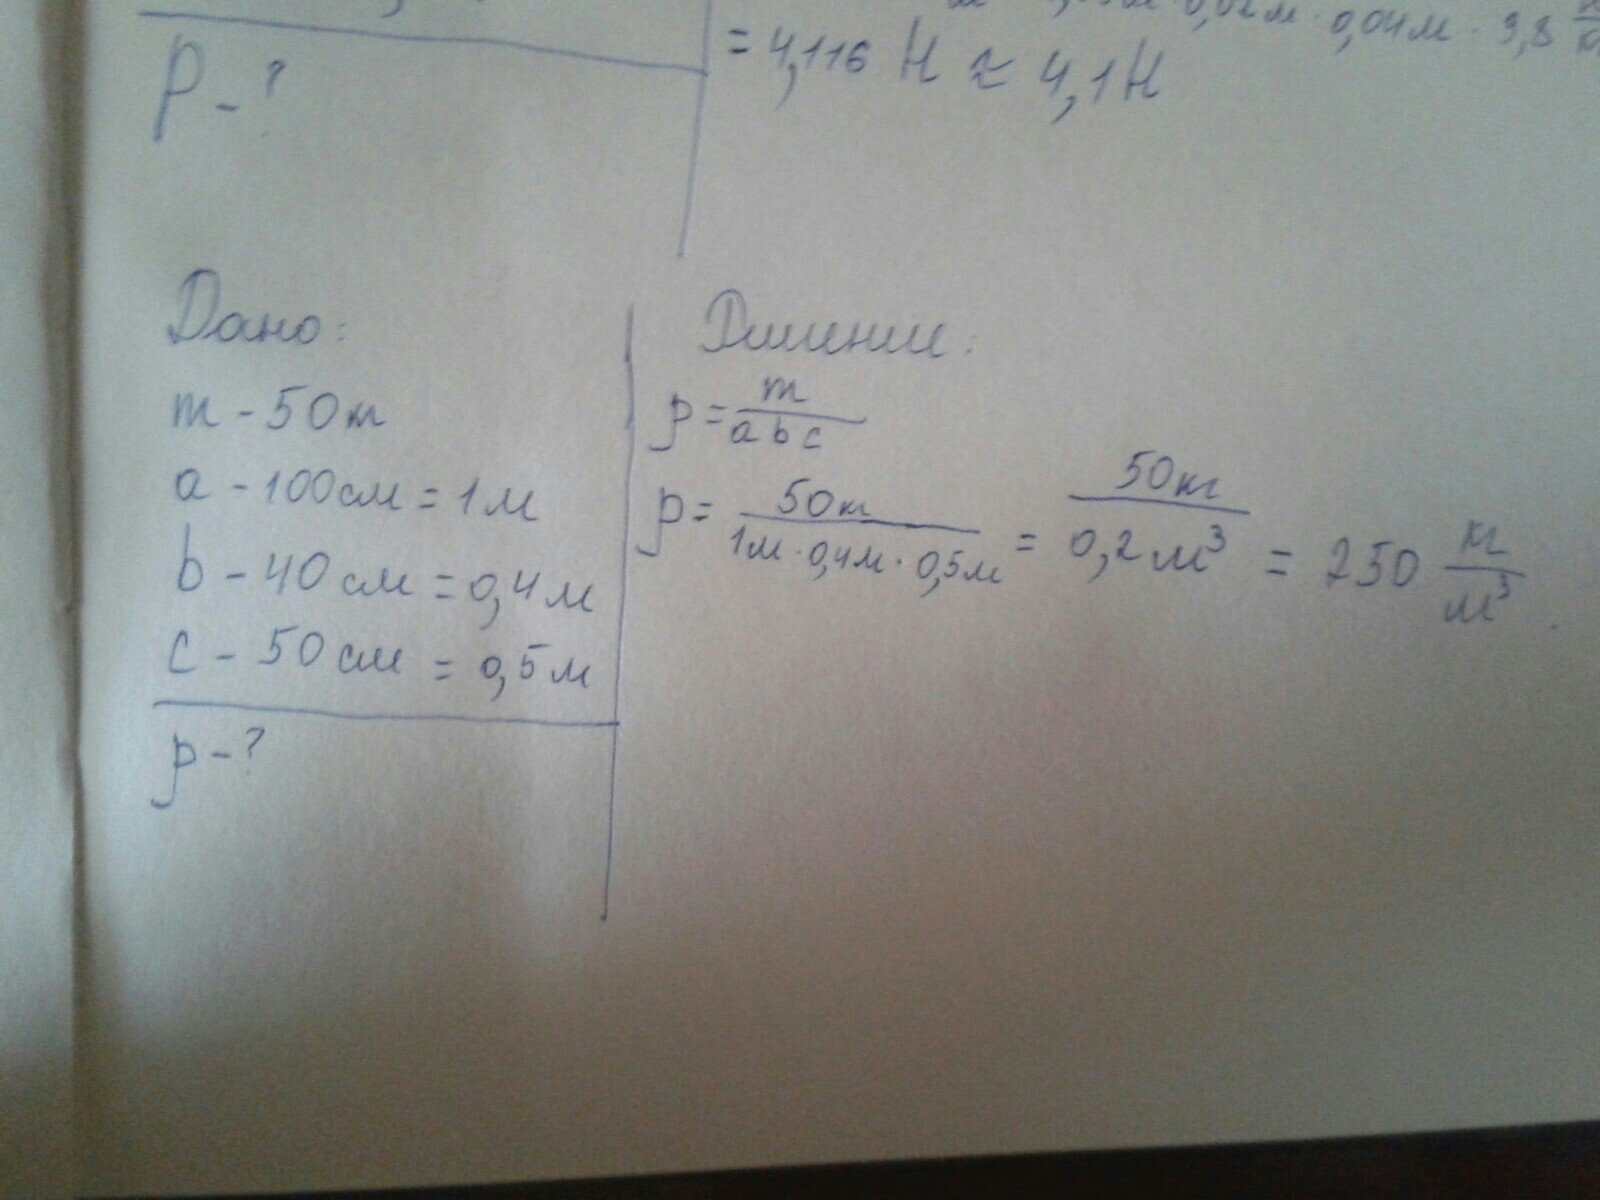 0,02м · 0,04м · 9,8
= 4,116 Н ≈ 4,1 Н
P - ?
Дано:
m - 50кг
a - 100см = 1м
b - 40см = 0,4м
c - 50см = 0,5м
ρ - ?
Решение:
ρ = m / abc
ρ = 50кг / 1м · 0,4м · 0,5м = 50кг / 0,2м³ = 250 кг / м³